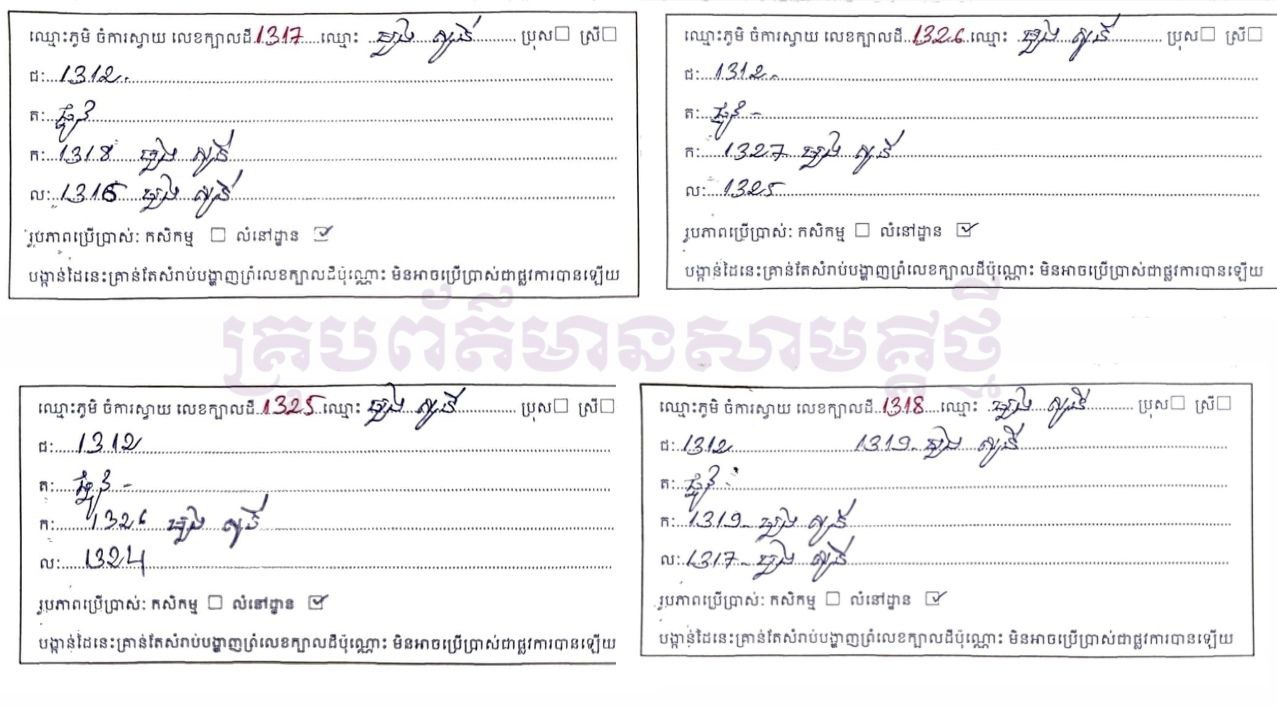 ឈ្មោះភូមិ ចំការស្វាយ លេខក្បាលដី 1317 ឈ្មោះ ប្រុស☐ ស្រី☐
ជ: 1312.
ត: ផ្លូវ
ក: 1318
ល: 1316
រូបភាពប្រើប្រាស់: កសិកម្ម ☐ លំនៅដ្ឋាន ☑
បង្កាន់ដៃនេះគ្រាន់តែសំរាប់បង្ហាញព្រំលេខក្បាលដីប៉ុណ្ណោះ មិនអាចប្រើប្រាស់ជាផ្លូវការបានឡើយ
ឈ្មោះភូមិ ចំការស្វាយ លេខក្បាលដី 1326 ឈ្មោះ ប្រុស☐ ស្រី☐
ជ: 1312.
ត: ផ្លូវ -
ក: 1327
ល: 1325
រូបភាពប្រើប្រាស់: កសិកម្ម ☐ លំនៅដ្ឋាន ☑
បង្កាន់ដៃនេះគ្រាន់តែសំរាប់បង្ហាញព្រំលេខក្បាលដីប៉ុណ្ណោះ មិនអាចប្រើប្រាស់ជាផ្លូវការបានឡើយ
គ្រុបព័ត៌មានសាមគ្គីថ្មី
ឈ្មោះភូមិ ចំការស្វាយ លេខក្បាលដី 1325 ឈ្មោះ ប្រុស☐ ស្រី☐
ជ: 1312
ត: ផ្លូវ -
ក: 1326
ល: 1324
រូបភាពប្រើប្រាស់: កសិកម្ម ☐ លំនៅដ្ឋាន ☑
បង្កាន់ដៃនេះគ្រាន់តែសំរាប់បង្ហាញព្រំលេខក្បាលដីប៉ុណ្ណោះ មិនអាចប្រើប្រាស់ជាផ្លូវការបានឡើយ
ឈ្មោះភូមិ ចំការស្វាយ លេខក្បាលដី 1318 ឈ្មោះ ប្រុស☐ ស្រី☐
ជ: 1312 1319-
ត: ផ្លូវ
ក: 1319-
ល: 1317-
រូបភាពប្រើប្រាស់: កសិកម្ម ☐ លំនៅដ្ឋាន ☑
បង្កាន់ដៃនេះគ្រាន់តែសំរាប់បង្ហាញព្រំលេខក្បាលដីប៉ុណ្ណោះ មិនអាចប្រើប្រាស់ជាផ្លូវការបានឡើយ